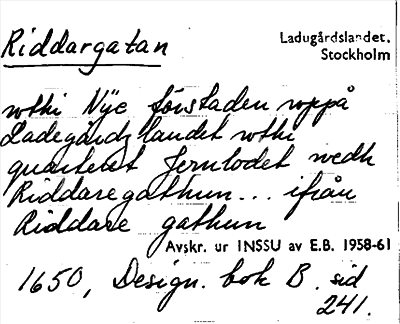 Riddargatan
Ladugårdslandet.
Stockholm
wthi Nÿe förstaden wppå
Ladegårdzlandet wthi
quarteret Jernlodet wedh
Riddaregathun... ifrån
Riddare gathun
Avskr. ur INSSU av E.B. 1958-61
1650, Design. bok B. sid
241.